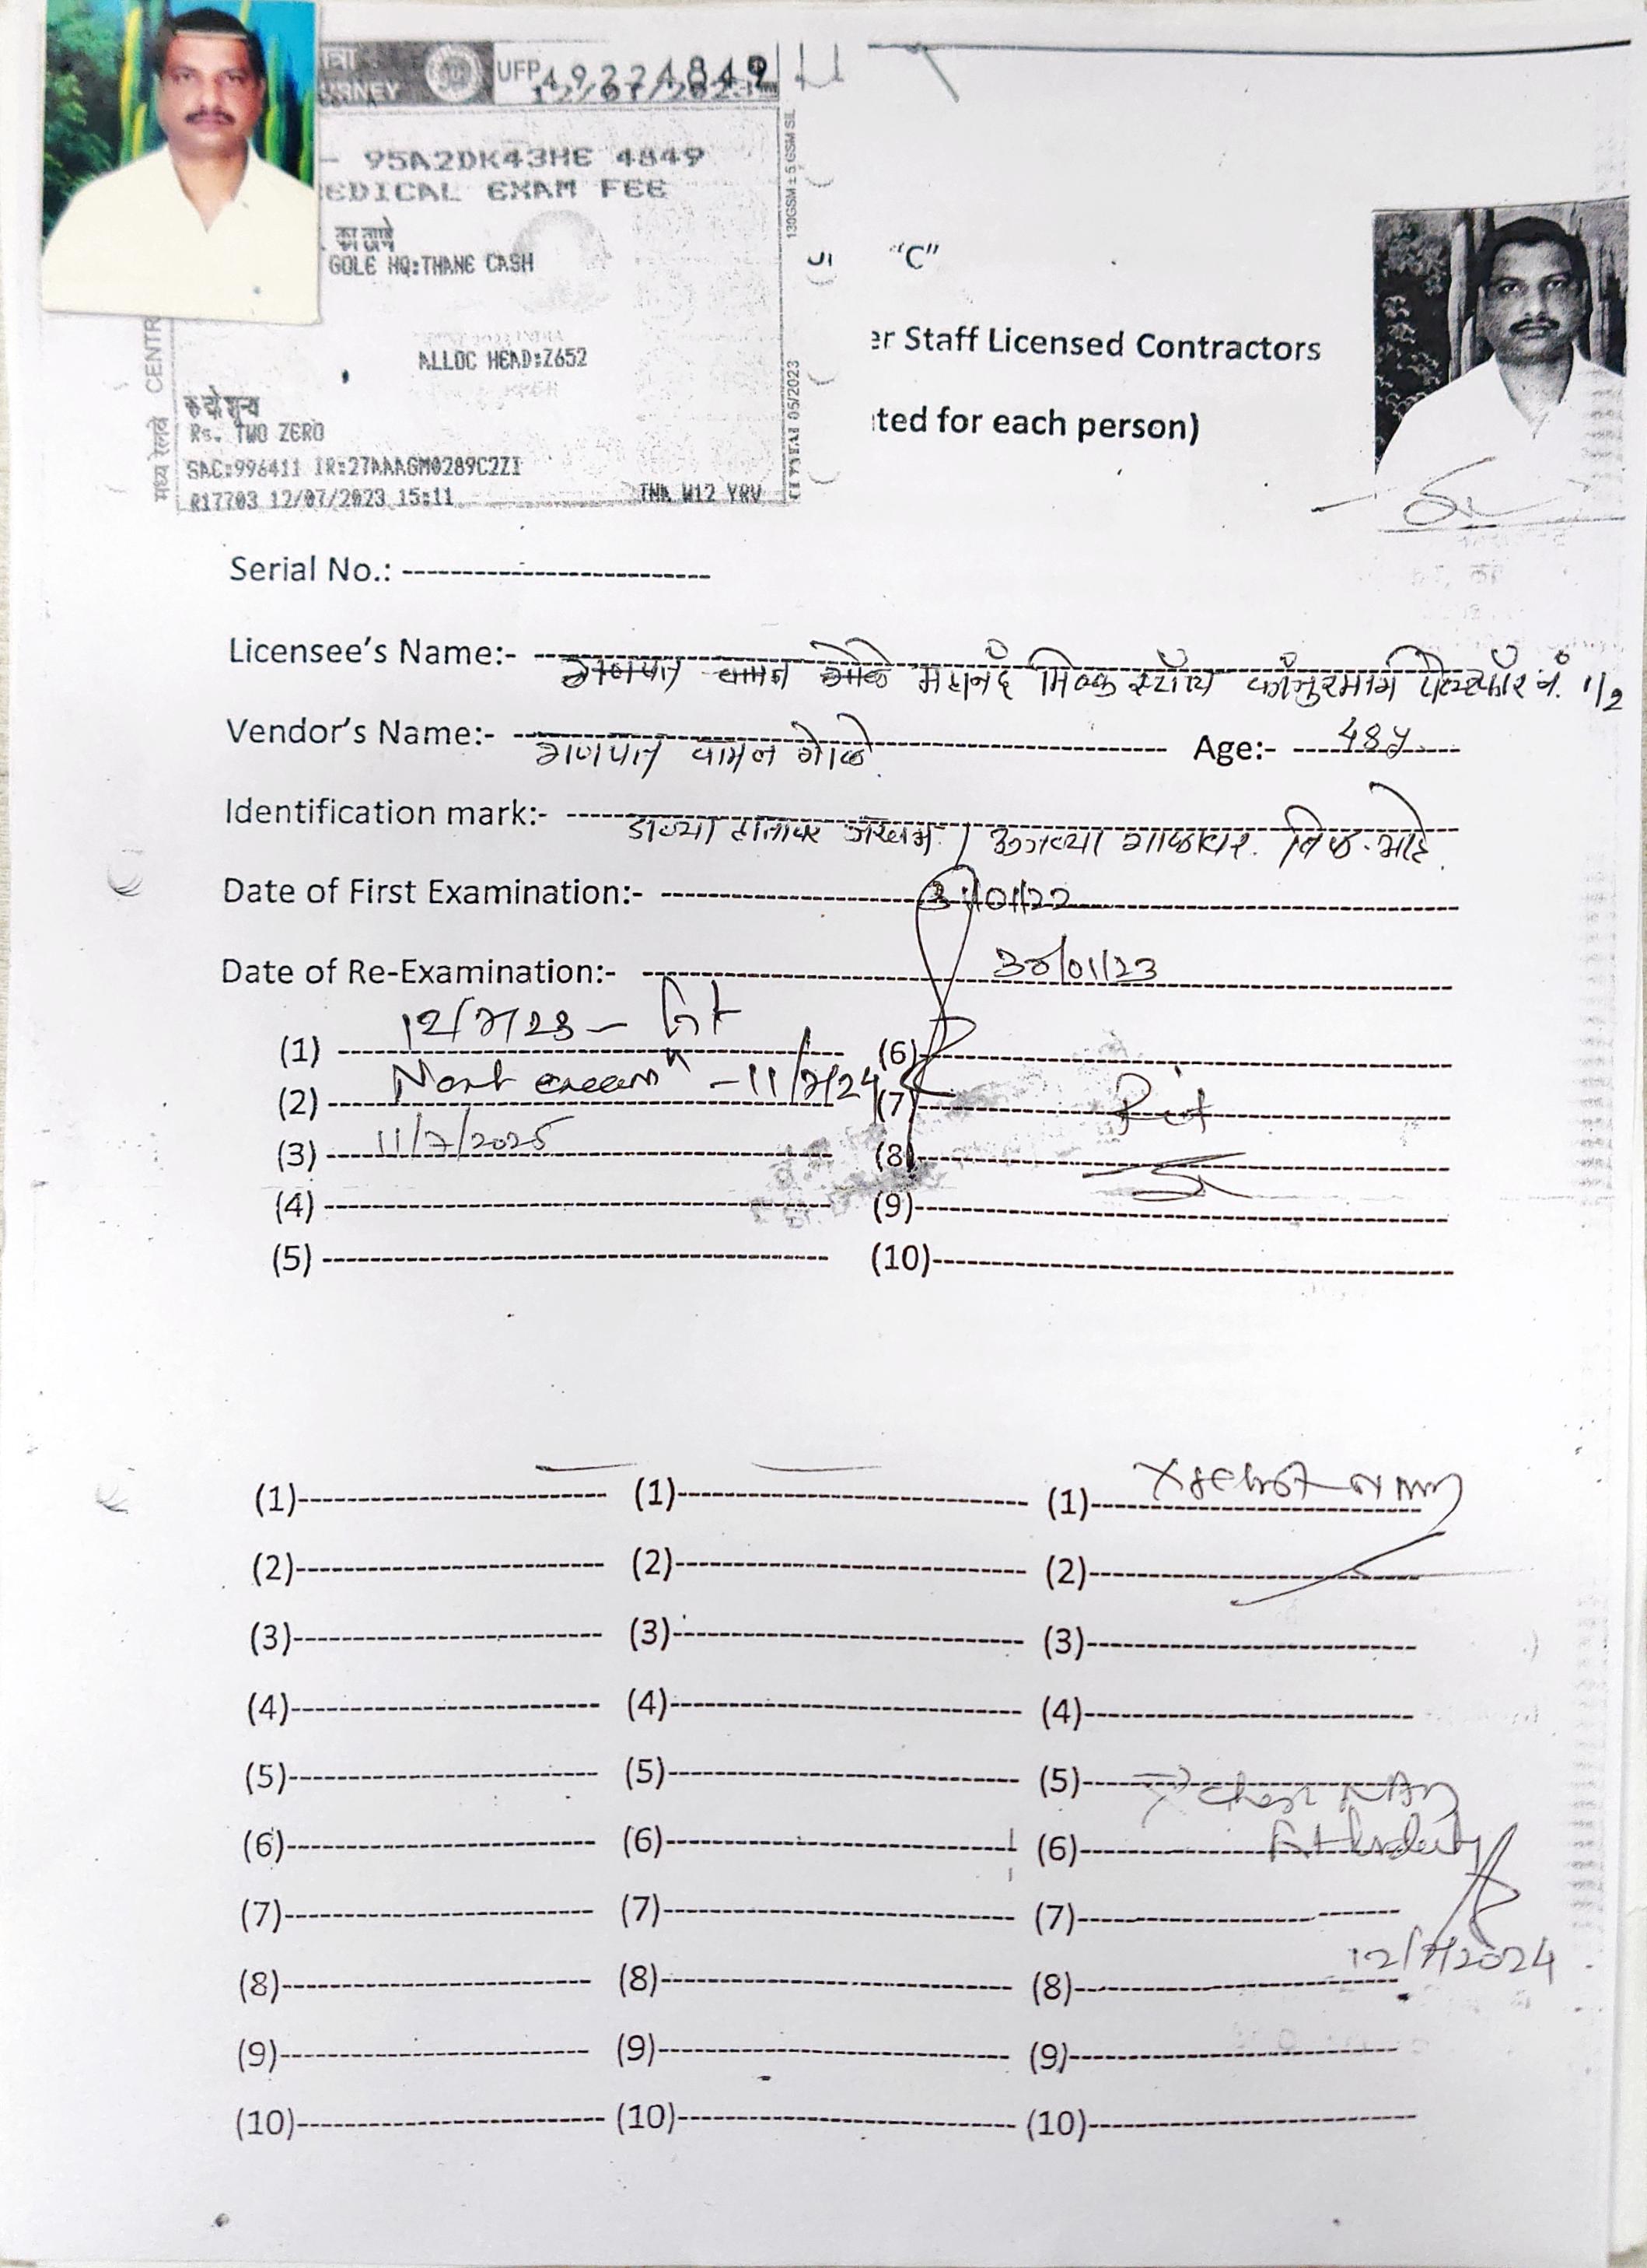 URNEY UFP 49224849
12/07/2023
- 95A2DK43HE 4849
EDICAL EXAM FEE
का ठाणे
GOLE HQ:THANE CASH
ALLOC HEAD:Z652
रु दो शून्य
Rs. TWO ZERO
SAC:996411 IR:27AAAGM0289C2ZI
R17703 12/07/2023 15:11 TNA W12 YRV
मध्य रेलवे CENTR
130GSM ± 5 GSM SIL
05/2023
"C"
er Staff Licensed Contractors
ted for each person)
Serial No.:
Licensee's Name:- गणपत वामन गोळे महानंद मिल्क स्टॉल कांजुरमार्ग प्लॅटफॉर्म नं. 1/2
Vendor's Name:- गणपत वामन गोळे Age:- 48y
Identification mark:- डाव्या हातावर जखम / उजव्या गालावर तिळ आहे.
Date of First Examination:- 31/01/22
Date of Re-Examination:- 30/01/23
(1) 12/7/23 - fit (6)
(2) Next exam - 11/7/24 (7) Fit
(3) 11/7/2025 (8)
(4) (9)
(5) (10)
(1) (1) (1)
(2) (2) (2)
(3) (3) (3)
(4) (4) (4)
(5) (5) (5) chest NAD
(6) (6) (6) Fit
(7) (7) (7)
12/7/2024
(8) (8) (8)
(9) (9) (9)
(10) (10) (10)